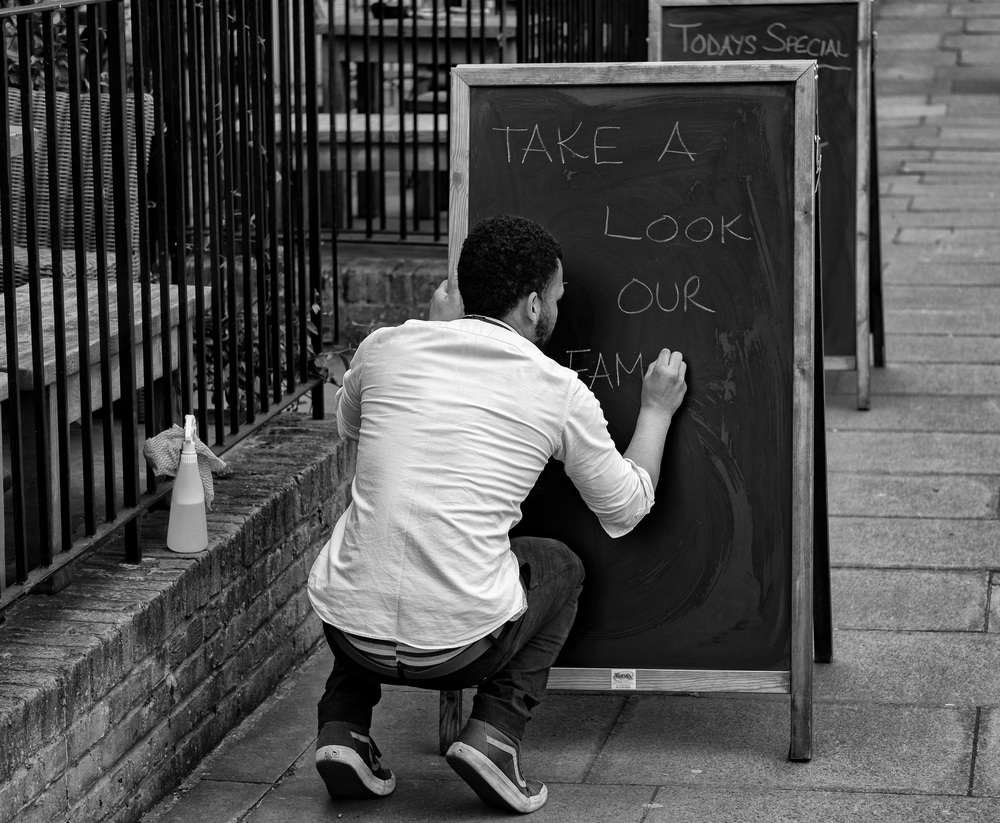 TODAYS SPECIAL
TAKE A
LOOK
OUR
FAM